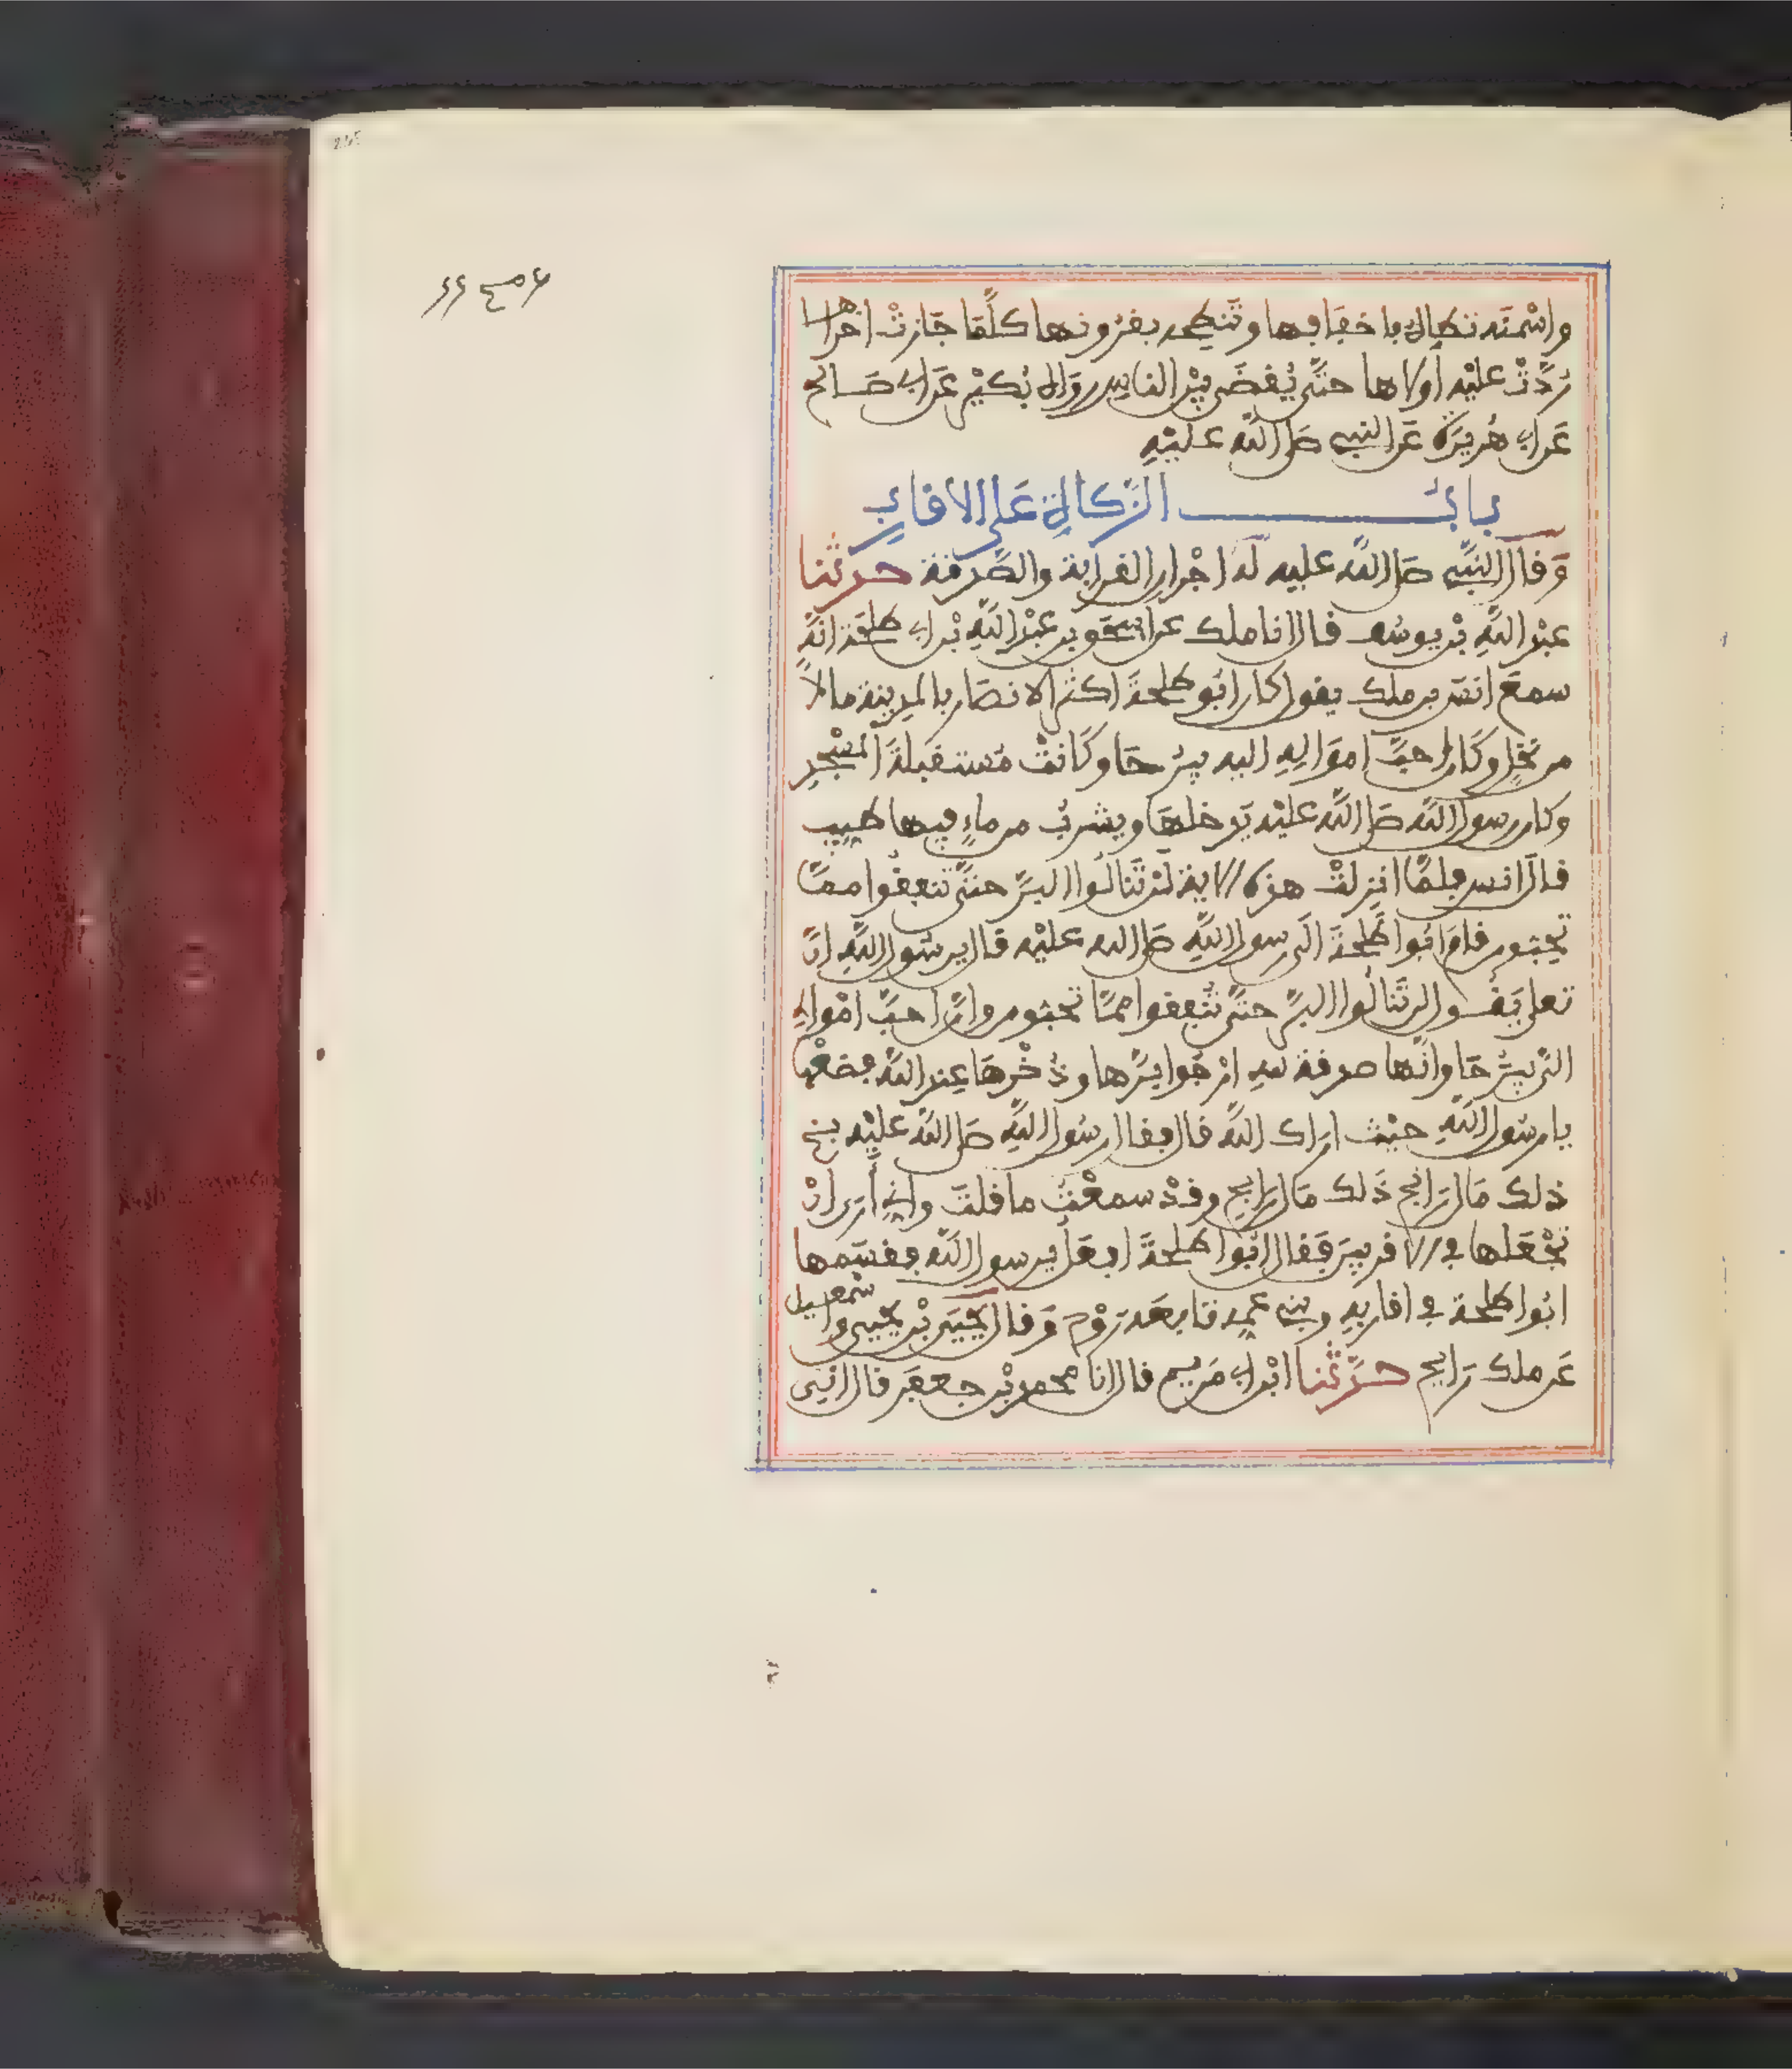 واسْمنَه تطاه باخفافها وتنطحه بقرونها كلَّمَا جَازتْ اخْراها
رُدَّتْ عليْه أولاها حتَّى يُقضَى بيْن الناس رواه بُكيْر عَن ابي صَالح
عَن ابي هُريرَة عَن النبي صلى اللَّه عليْهِ
بابُ الزَّكاةِ عَلى الأقاربِ
وَقال النَّبي صلى اللَّه عليه لَهُ اجْران القرابة والصَّدقة حدثنا
عبْد اللَّهِ بْن يوسُف قال انا ملك عن اسحٰق بن عبْد اللَّهِ بْن ابي طلحَة انَّهُ
سمعَ انسَ بن ملك يقول كان ابُو طلحَةَ اكثرَ الانصَار بالمدينة مالاً
من نخْلٍ وكَان احبَّ امْوَالِهِ اليه بيْرُحَا وكَانتْ مُستقبلَةَ المسْجدِ
وكان رسول اللَّه صلى اللَّه عليْه يَدخلهَا ويشربُ من ماءٍ فيها طيبٍ
قال انس فلمَّا انزلتْ هذه الاية لنْ تَنالُوا البرَّ حتَّى تنفقُوا ممَّا
تحبّون قامَ ابُوا طلحَةَ الَى رسول اللَّهِ صلى الله عليْه قال يرسُول اللَّهِ انَّ
تعلى يَقُول لن تَنالُوا البرَّ حتَّى تُنفقوا ممَّا تحبُّون وانَّ احبَّ امْوالي
اليَّ بيْرُحَا وانَّها صدقة للهِ ارْجُوا برَّها وذُخْرهَا عِند اللَّه فضعْها
يا رسُول اللَّهِ حيْث اراك اللَّه قال فقال رسُول اللَّهِ صلى اللَّه عليْه بخ
ذلك مَال رَابح ذَلك مَال رَابح وقدْ سمعْتُ ما قلتَ واني أرَى انْ
تجْعَلها في الاقربينَ فَقال ابُوا طلحَةَ افعَلُ يرسول اللَّه فقسَمها
ابُوا طلحة في اقاربهِ وبني عمه تابعَه رَوْح وَقال يحْيَى بْن يحيى واسْمعيل
عَن ملك رَايح حدَّثنا ابْن ابي مَريم قال انا محمد بْن جعفَر قال اني